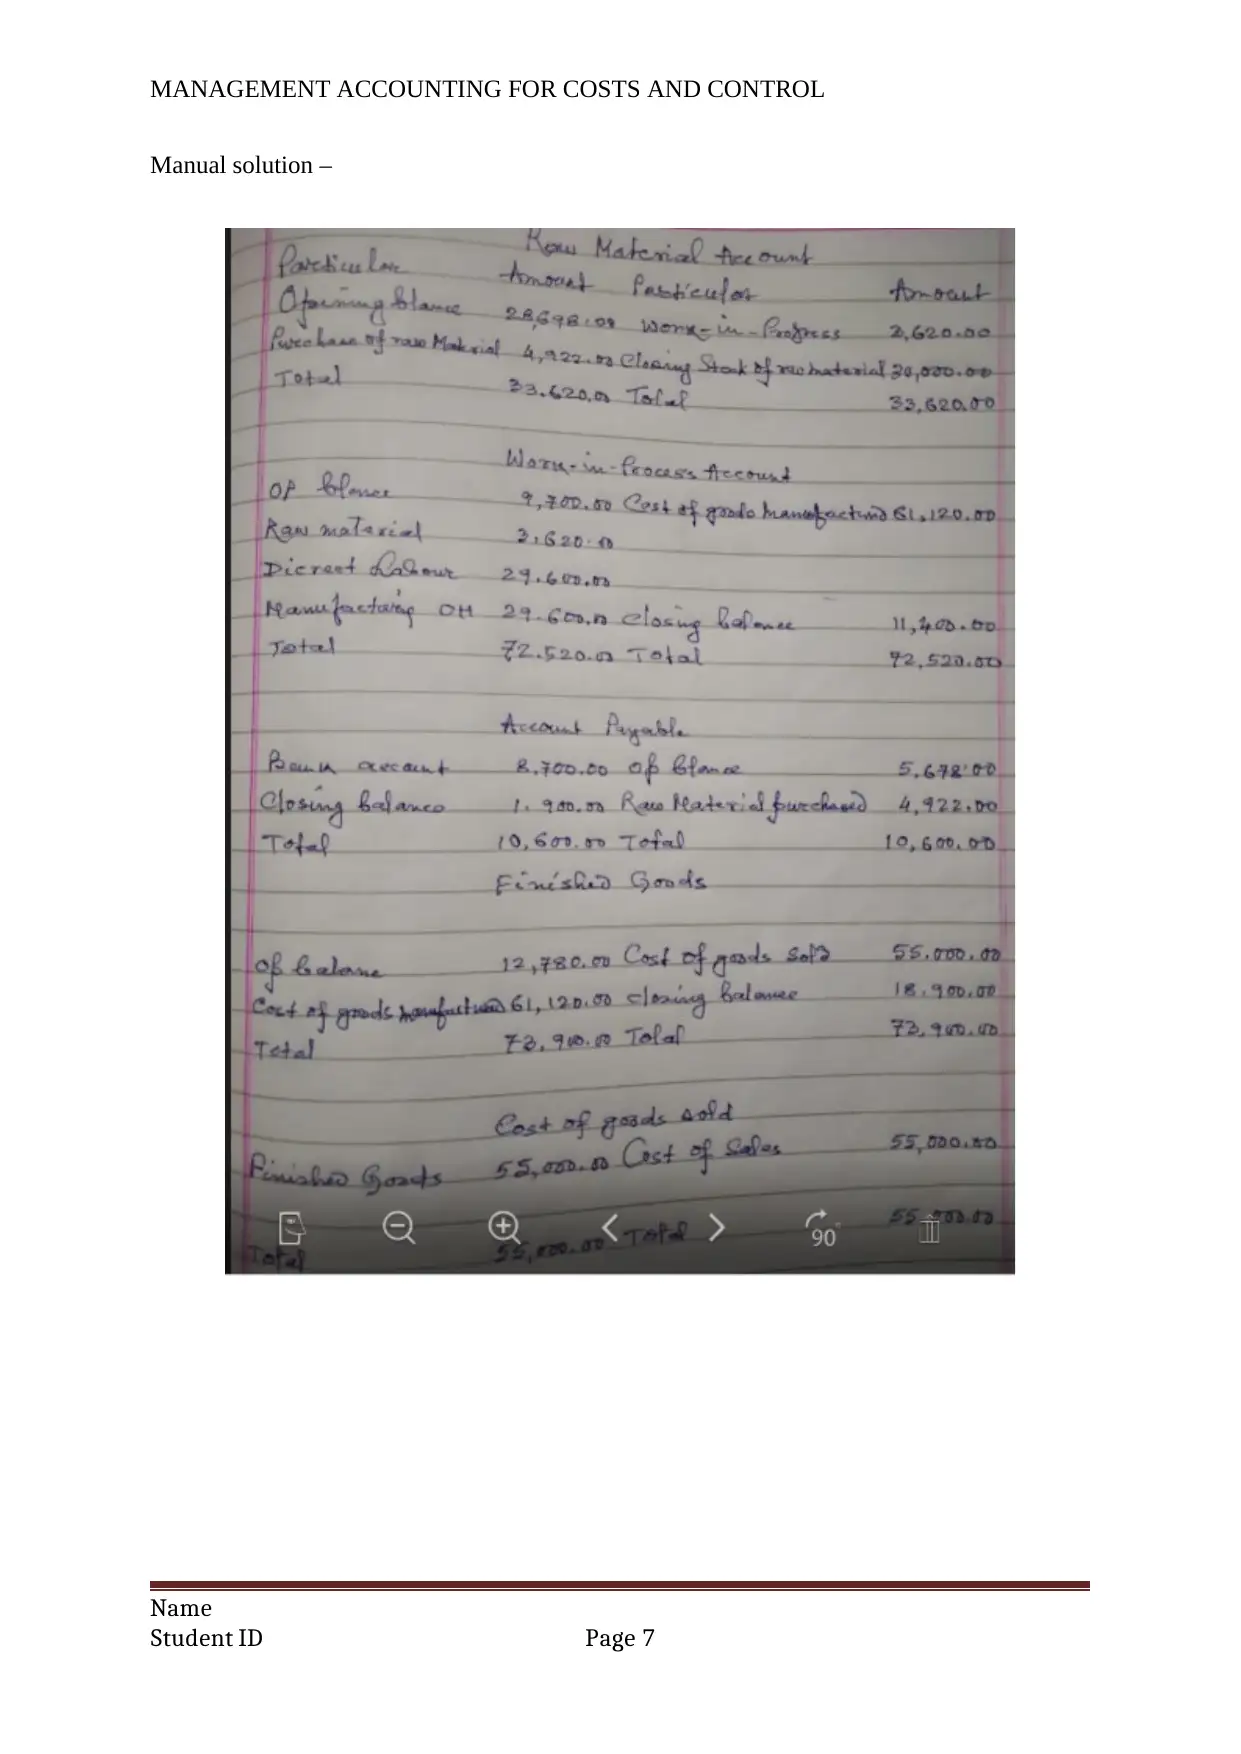 MANAGEMENT ACCOUNTING FOR COSTS AND CONTROL
Manual solution –
Raw Material Account
Particular Amount Particular Amount
Opening blance 28,698.00 Work-in-Progress 3,620.00
Purchase of raw Material 4,922.00 Closing Stock of raw material 30,000.00
Total 33.620.00 Total 33,620.00
Work-in-Process Account
OP blance 9,700.00 Cost of goods manufactured 61,120.00
Raw material 3,620.00
Dicreet Labour 29.600.00
Manufacturing OH 29.600.00 Closing balance 11,400.00
Total 72.520.00 Total 72,520.00
Account Payable
Bank account 8.700.00 op blance 5,678.00
Closing balance 1.900.00 Raw Material purchased 4,922.00
Total 10,600.00 Total 10,600.00
Finished Goods
op balane 12,780.00 Cost of goods sold 55.000.00
Cost of goods manufactured 61,120.00 closing balance 18,900.00
Total 73,900.00 Total 73,900.00
Cost of goods sold
Finished Goods 55,000.00 Cost of Sales 55,000.00
Total 55,000.00 Total 55,000.00
90°
Name
Student ID Page 7